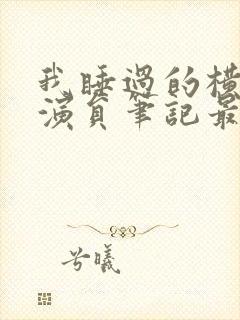 我睡過的橫
演員筆記最
兮曦